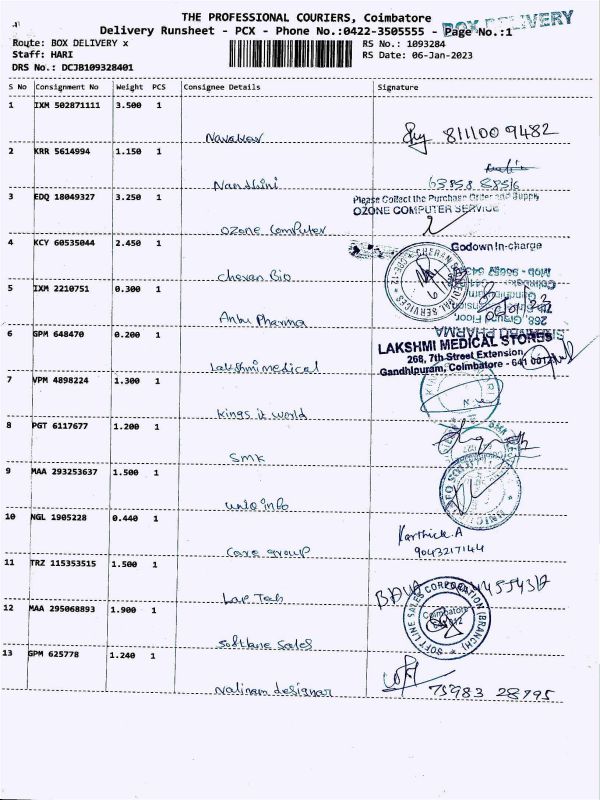 THE PROFESSIONAL COURIERS, Coimbatore
BOX DELIVERY
Delivery Runsheet - PCX - Phone No.:0422-3505555 - Page No.:1
Route: BOX DELIVERY x
RS No.: 1093284
Staff: HARI
RS Date: 06-Jan-2023
DRS No.: DCJB109328401
S No Consignment No Weight PCS Consignee Details Signature
1 IXM 502871111 3.500 1
811100 9482
2 KRR 5614994 1.150 1
Nandhini
3 EDQ 18049327 3.250 1
Please Collect the Purchase Order and Supply
OZONE COMPUTER SERVICE
Ozone Computer
4 KCY 60535044 2.450 1
Godown In-charge
Cheran Bio
5 IXM 2210751 0.300 1
Anbu Pharma
6 GPM 648470 0.200 1
LAKSHMI MEDICAL STORES
268, 7th Street Extension
Gandhipuram, Coimbatore - 641 012
Lakshmi medical
7 VPM 4898224 1.300 1
Kings it world
8 PGT 6117677 1.200 1
SMK
9 MAA 293253637 1.500 1
uniq info
10 NGL 1905228 0.440 1
Karthick.A
9043217144
Care group
11 TRZ 115353515 1.500 1
Lap Tech
12 MAA 295068893 1.900 1
SOFT LINE SALES CORPORATION (BRANCH)
Coimbatore
641 012
Softline Sales
13 GPM 625778 1.240 1
75983 28795
Nalinam designar